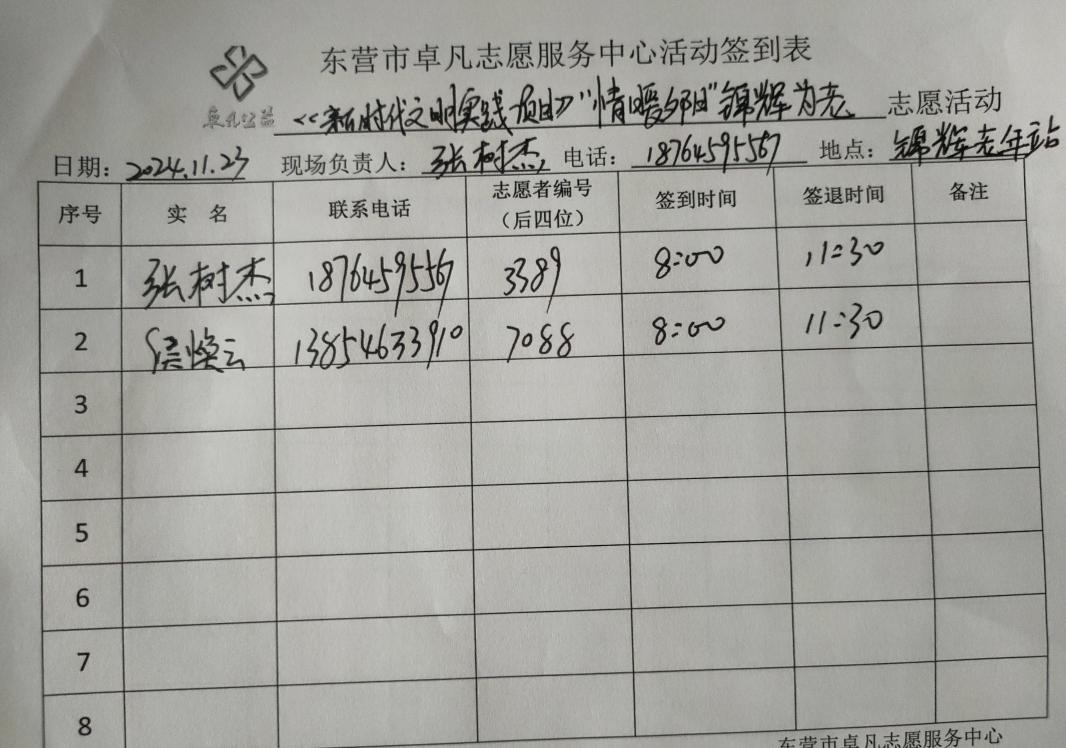 东营市卓凡志愿服务中心活动签到表
卓凡公益
<<新时代文明实践项目>>"情暖夕阳"锦辉为老 志愿活动
日期：2024.11.23 现场负责人：张树杰 电话：18764595567 地点：锦辉老年站
序号 实 名 联系电话 志愿者编号（后四位） 签到时间 签退时间 备注
1 张树杰 18764595567 3389 8:00 11:30
2 侯焕云 13854633910 7088 8:00 11:30
3
4
5
6
7
8
东营市卓凡志愿服务中心